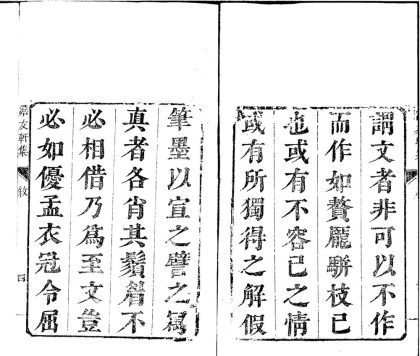 謂文者非可以不作
而作如贅龎駢枝已
也或有不容已之情
或有所獨得之解假
筆墨以宣之譬之寫
眞者各肖其鬚睂不
必相借乃爲至文豈
必如優孟衣冠令屈
友軒集
四